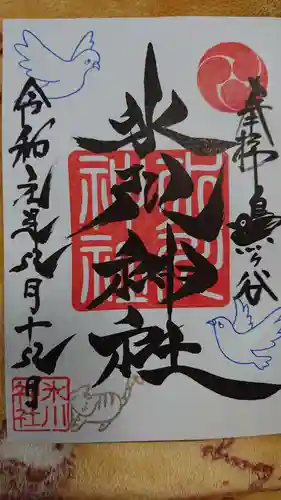 奉拝 鳩ヶ谷
氷川神社
氷川
神社
令和元年九月十九日
氷川
神社